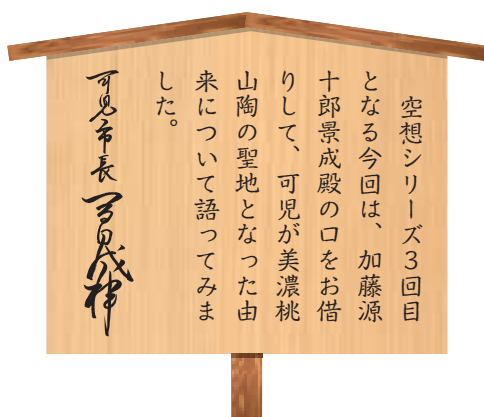 空想シリーズ3回目
となる今回は、加藤源
十郎景成殿の口をお借
りして、可児が美濃桃
山陶の聖地となった由
来について語ってみま
した。
可児市長 冨田成輝